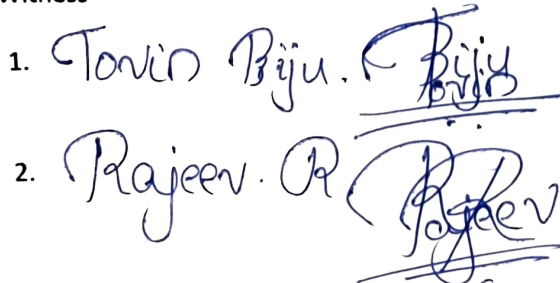 Witness
1. Tovin Biju. Tovin Biju
2. Rajeev. R Rajeev